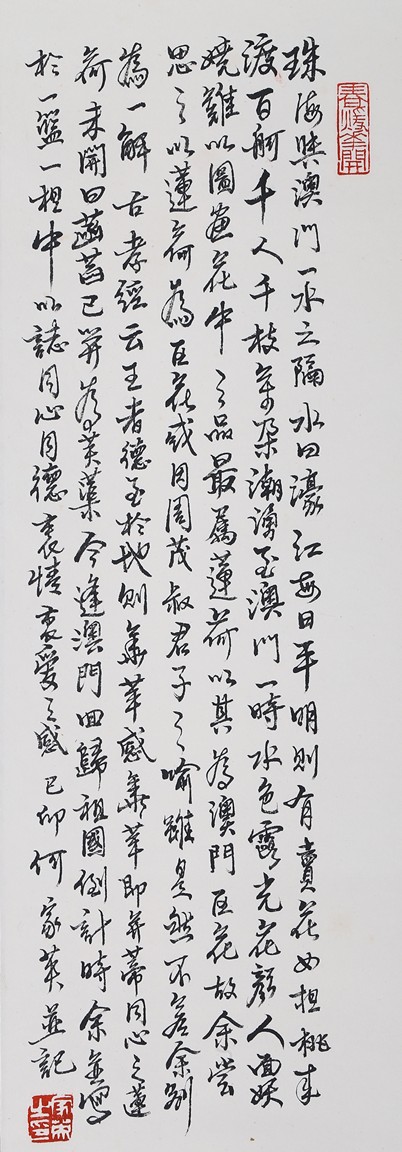 珠海與澳門一水之隔水曰濠江每日平明則有賣花女担挑來
渡百舸千人千枝萬朵潮湧至澳門一時水色露光花顏人面妖
嬈難以圖画花中之品最屬蓮荷以其為澳門區花故余嘗
思之以蓮荷為區花或因周茂叔君子之喻雖是然不否余別
為一解古孝經云王者德至於地則華苹感華苹即并蒂同心之蓮
荷未開曰菡萏已開為芙蕖今逢澳門回歸祖國倒計時余並寫
於一籃一担中以誌同心同德衷情衷愛之感己卯何家英並記
家英之印